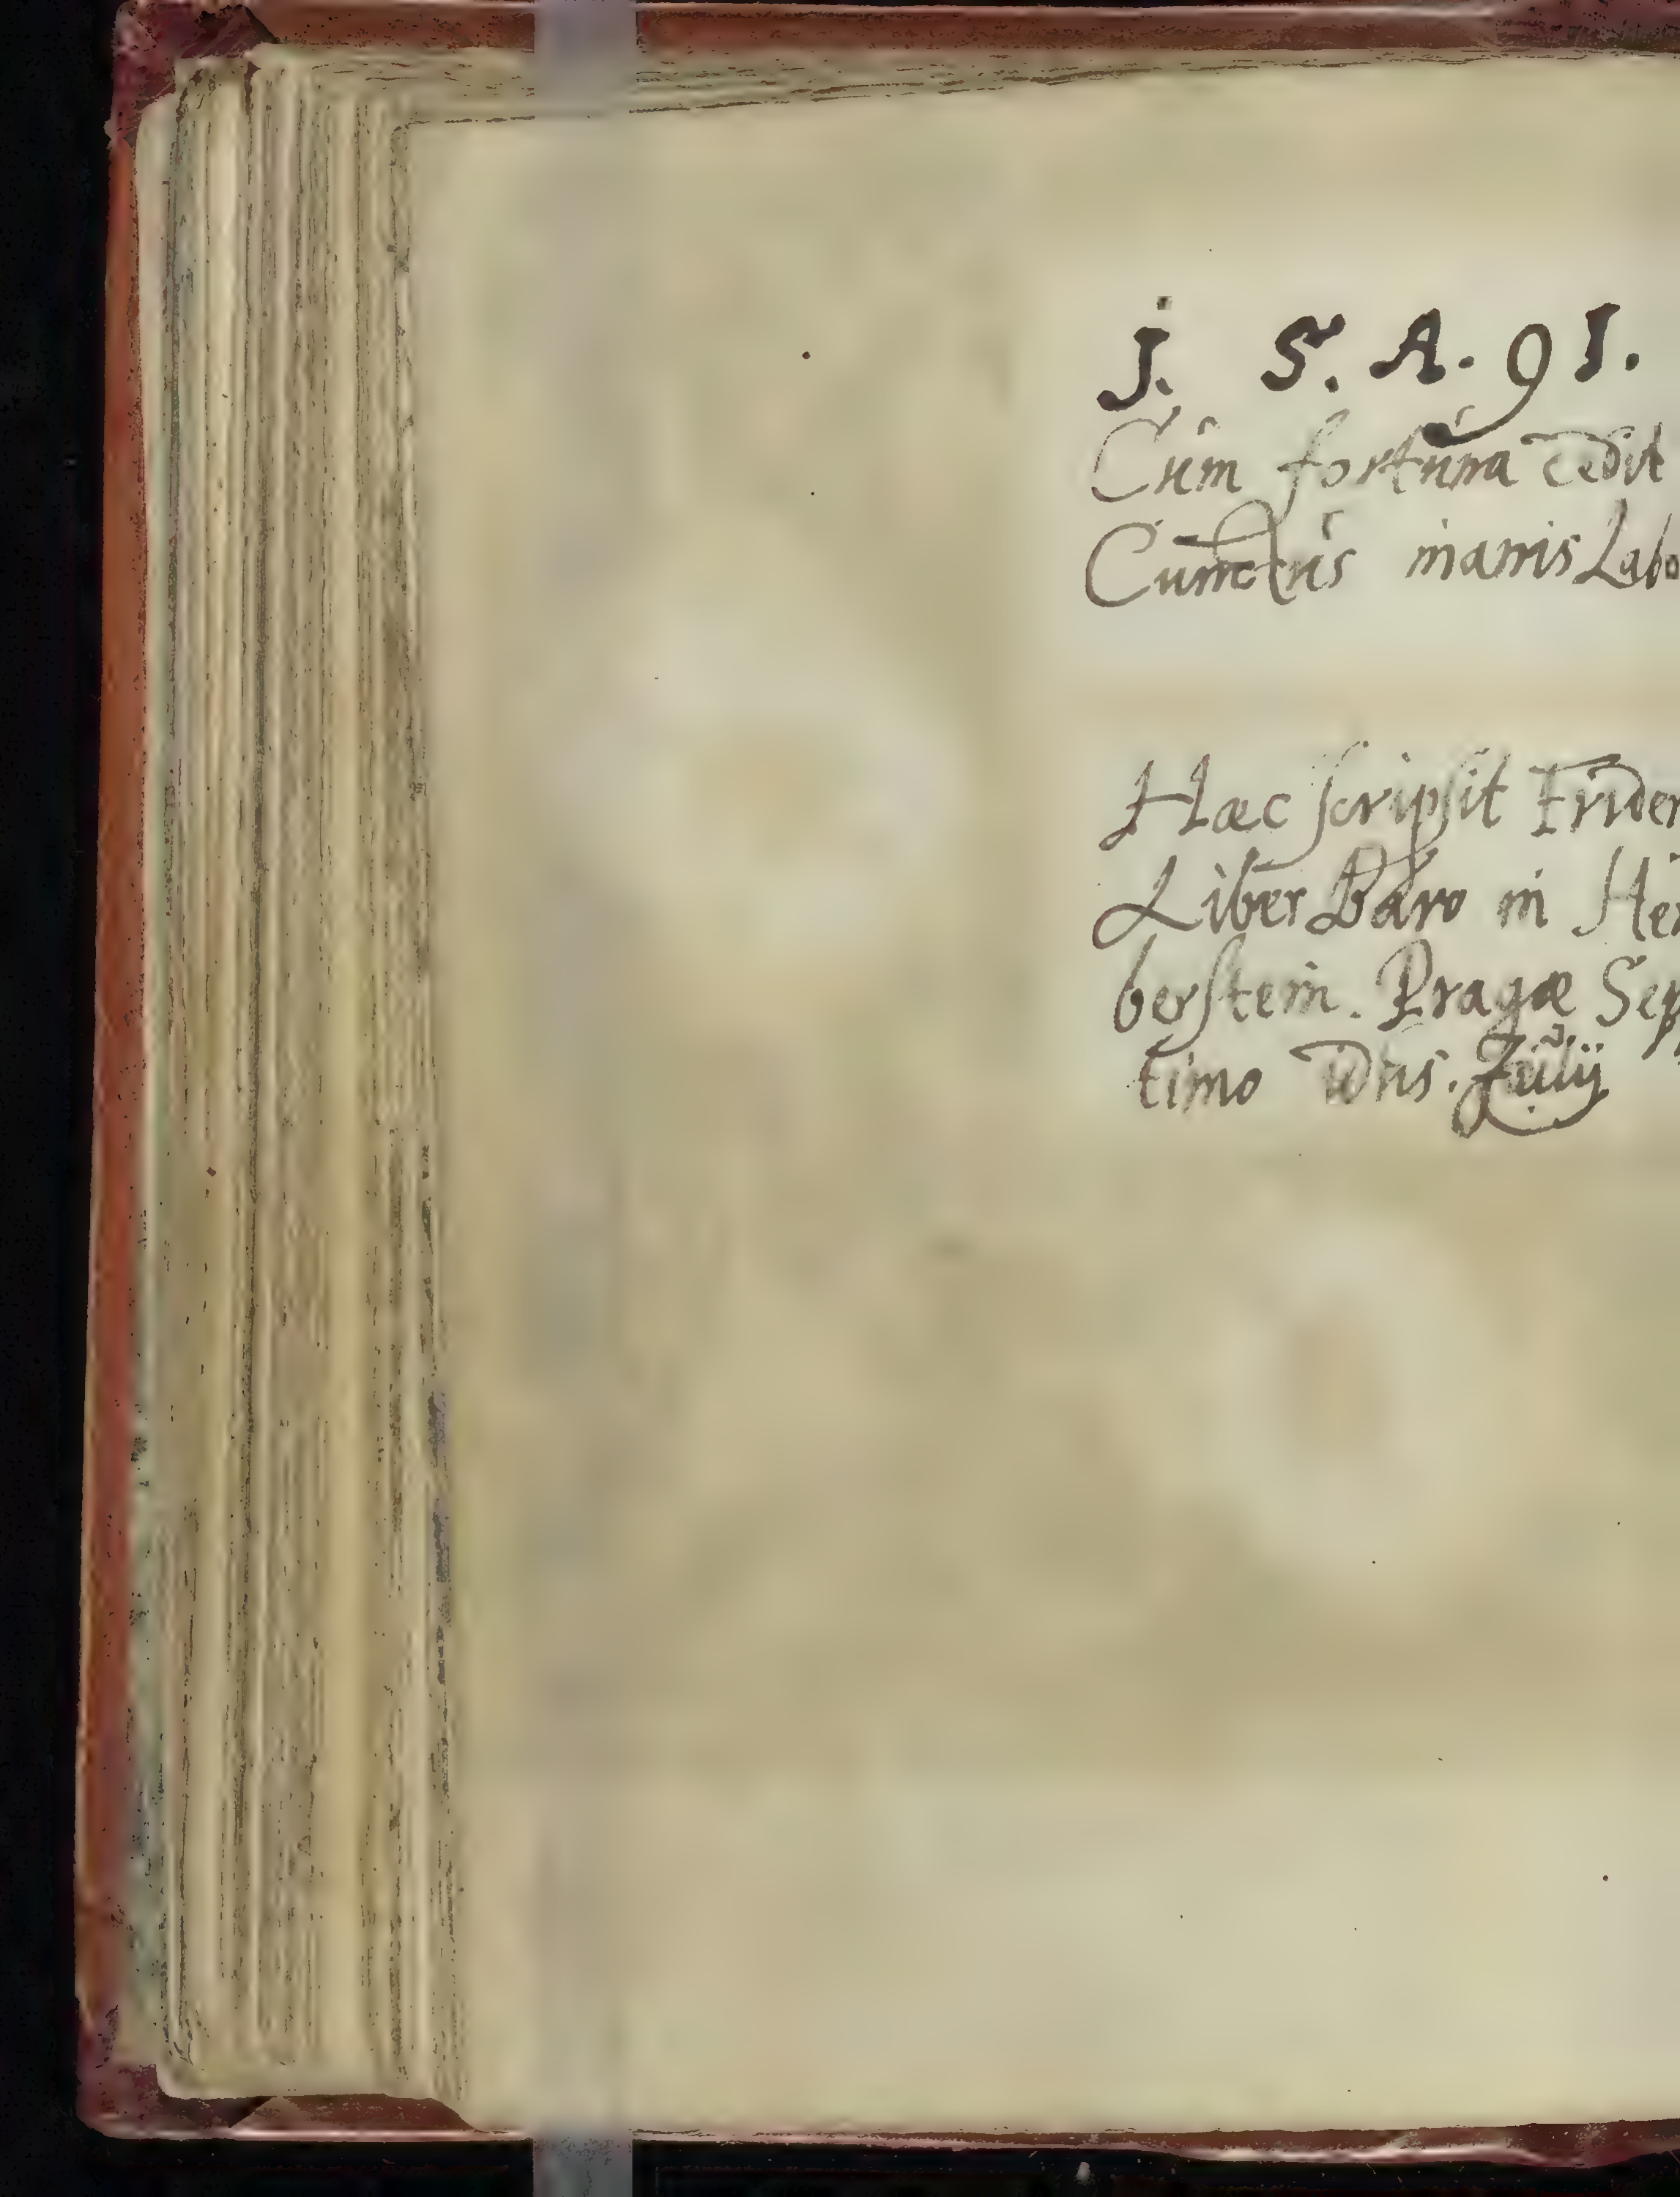 J. S. A. 91.
Cúm fortúna cedit
Cunctús inanis Labo
Hæc scripsit Frider
Liber Baro in Her
berstein. Pragæ Sep
timo Idús. Júlij